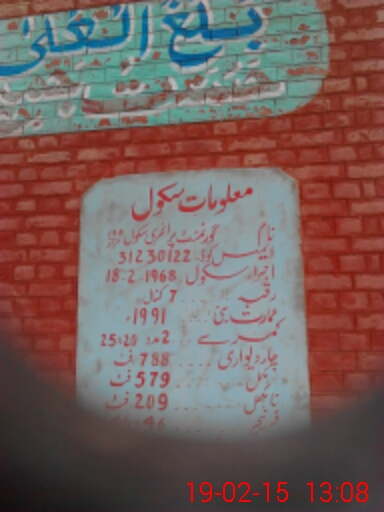 بلغ العلیٰ
معلومات سکول
نام گورنمنٹ پرائمری سکول
ایمس کوڈ 31230122
اجراء سکول 18.2.1968
رقبہ 7 کنال
عمارت بنی 1991ء
کمرے 2 عدد 20×25
چاردیواری 788 فٹ
مکمل 579 فٹ
نامکمل 209 فٹ
46
19-02-15 13:08